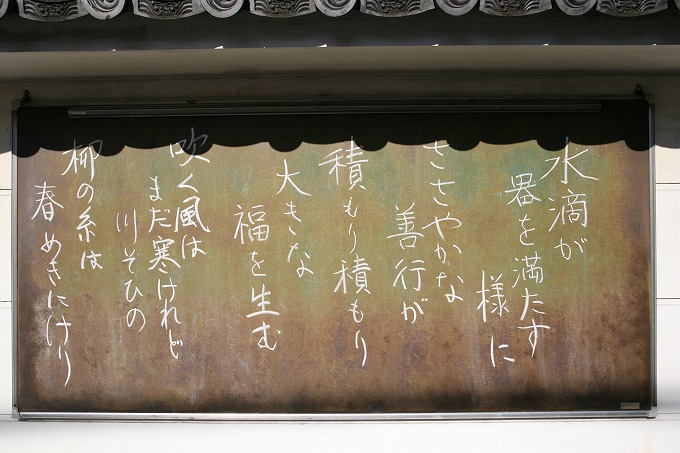 水滴が
器を満たす
様に
ささやかな
善行が
積もり積もり
大きな
福を生む
吹く風は
まだ寒けれど
川そひの
柳の糸は
春めきにけり